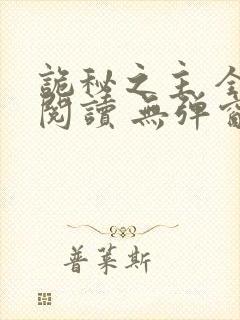 詭秘之主 全
閱讀 無彈窗
普萊斯